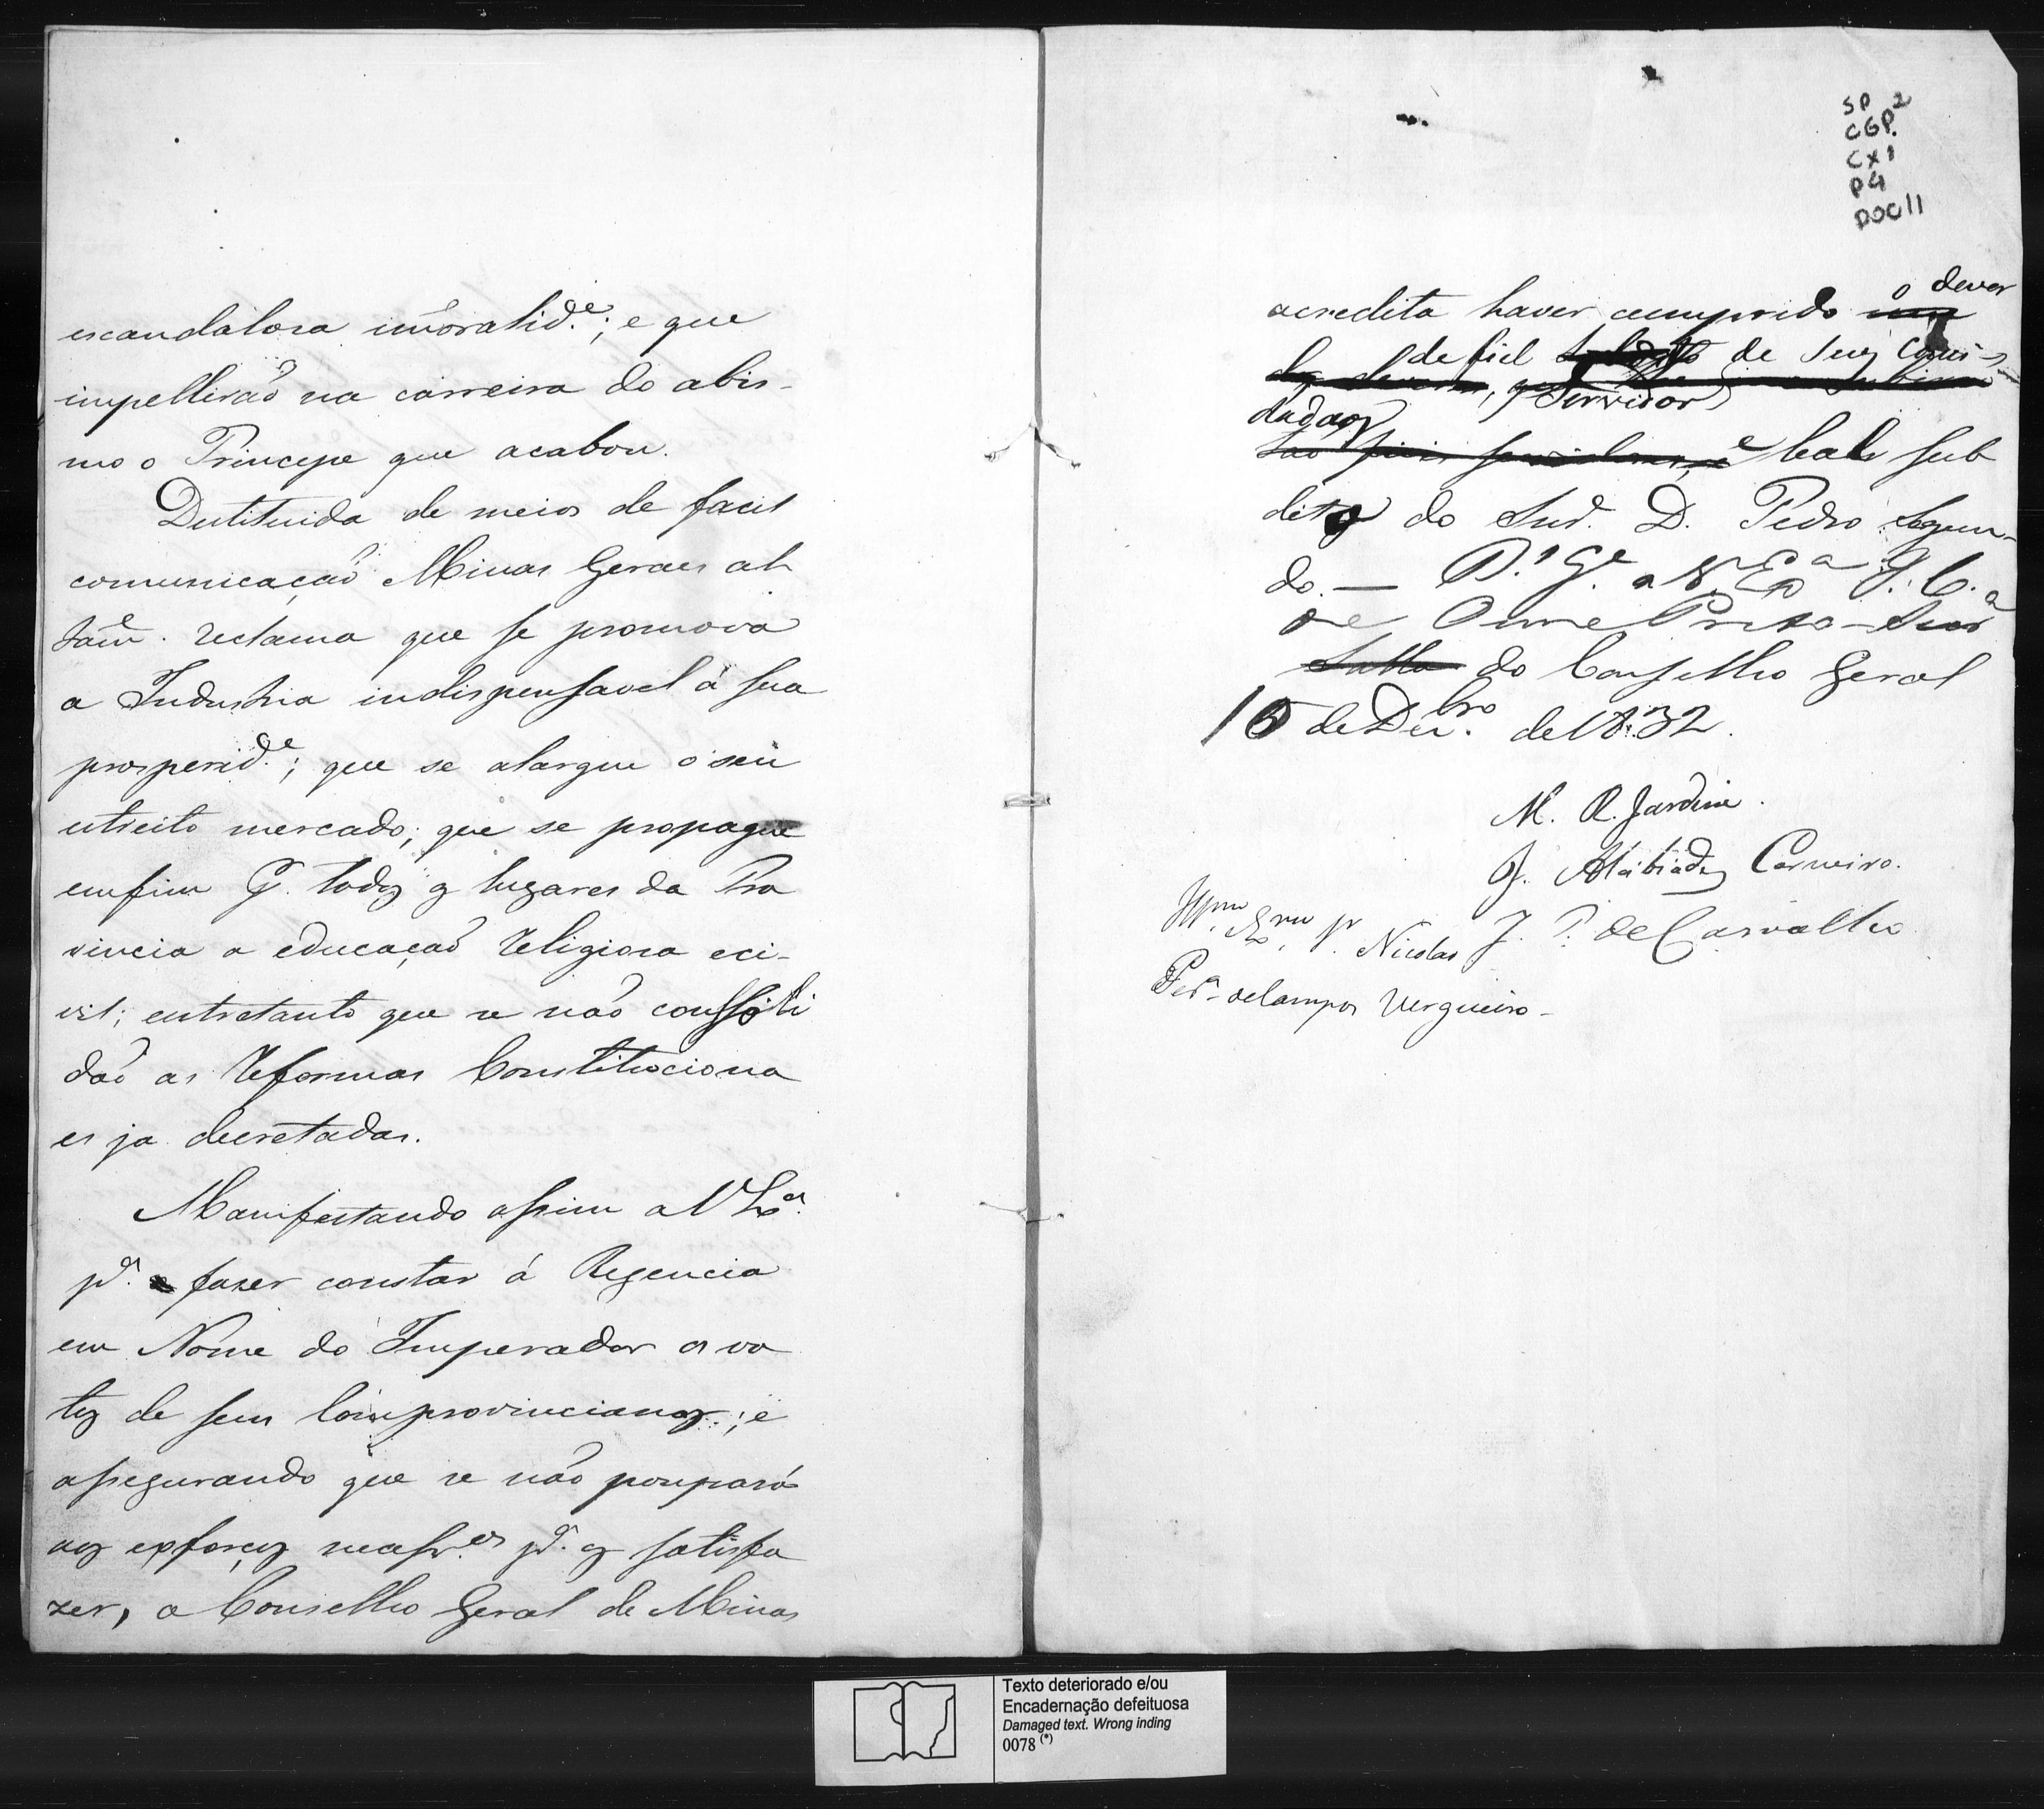 escandalosa im̃oralid.e; e que
impellirão na carreira do abis-
mo o Principe que acabou.
Destituida de meios de facil
comunicação Minas Geraes al
tam.e reclama que se promova
a Industria indispensavel á sua
prosperid.e; que se alargue o seu
estreito mercado; que se propague
emfim p. todos os lugares da Pro
vincia a educação religiosa e ci-
vil; entretanto que se não consoli
dão as reformas Constituciona
es ja decretadas.
Manifestando assim a V Ex.a
p.a fazer constar á Regencia
em Nome do Imperador os vo
tos de seus Comprovincianos; e
assegurando que se não poupará
aos exforços necess.os p.a os satisfa
zer, o Conselho Geral de Minas
SP
CGP.2
CX1
P4
DOC11
o dever
acredita haver cumprido um
de fiel de seus Conci-
servidor
dadaos
e leal sub
dito do Snr. D. Pedro Segun-
do. — D.s G.e a V. Ex.a I. C.
de Ouro Preto
Salla do Conselho Geral
15 de Dez.bro de 1832.
M. R. Jardim.
J. Alcibiades Carneiro.
J. P. de Carvalho
Ill.mo Ex.mo Sr. Nicolao
Per.a de Campos Vergueiro-
Texto deteriorado e/ou
Encadernação defeituosa
Damaged text. Wrong inding
0078 (*)